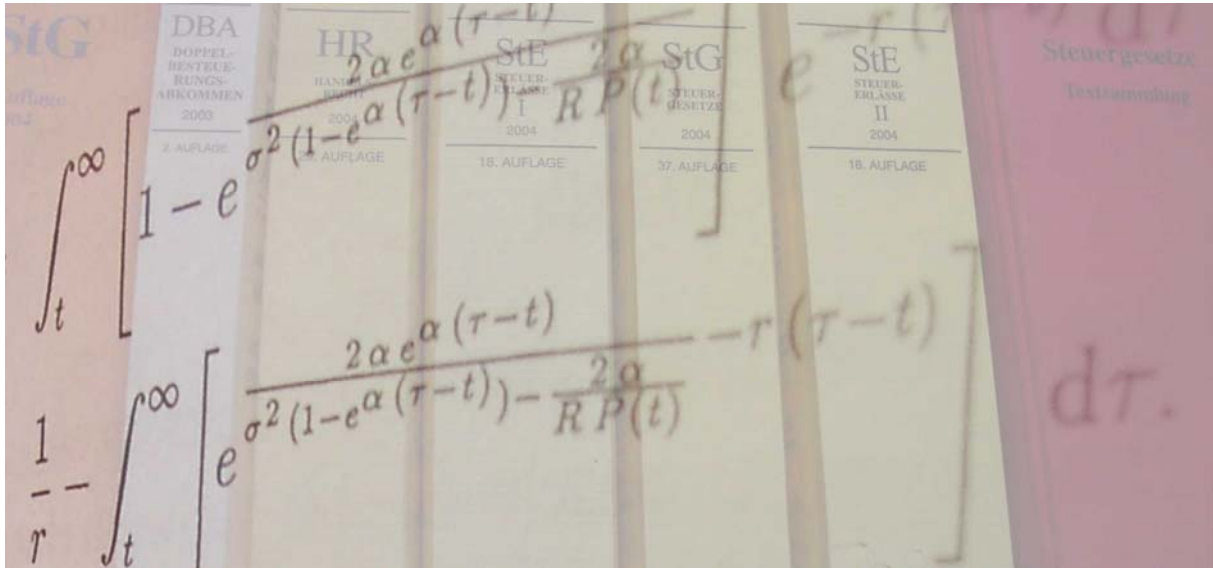 StG
DBA
DOPPEL-
BESTEUE-
RUNGS-
ABKOMMEN
2003
2. AUFLAGE
HR
2004
StE
STEUER-
ERLASSE
I
2004
18. AUFLAGE
StG
STEUER-
GESETZE
2004
37. AUFLAGE
StE
STEUER-
ERLÄSSE
II
2004
18. AUFLAGE
Steuergesetze
Textsammlung
∫_t^∞ [1 − e^{\frac{2 α e^{α (τ−t)}}{σ^2 (1−e^{α (τ−t)}) − \frac{2 α}{R P(t)}}}] e^{−r (τ−t)} dτ
\frac{1}{r} − ∫_t^∞ [e^{\frac{2 α e^{α (τ−t)}}{σ^2 (1−e^{α (τ−t)}) − \frac{2 α}{R P(t)}} − r (τ−t)}] dτ.